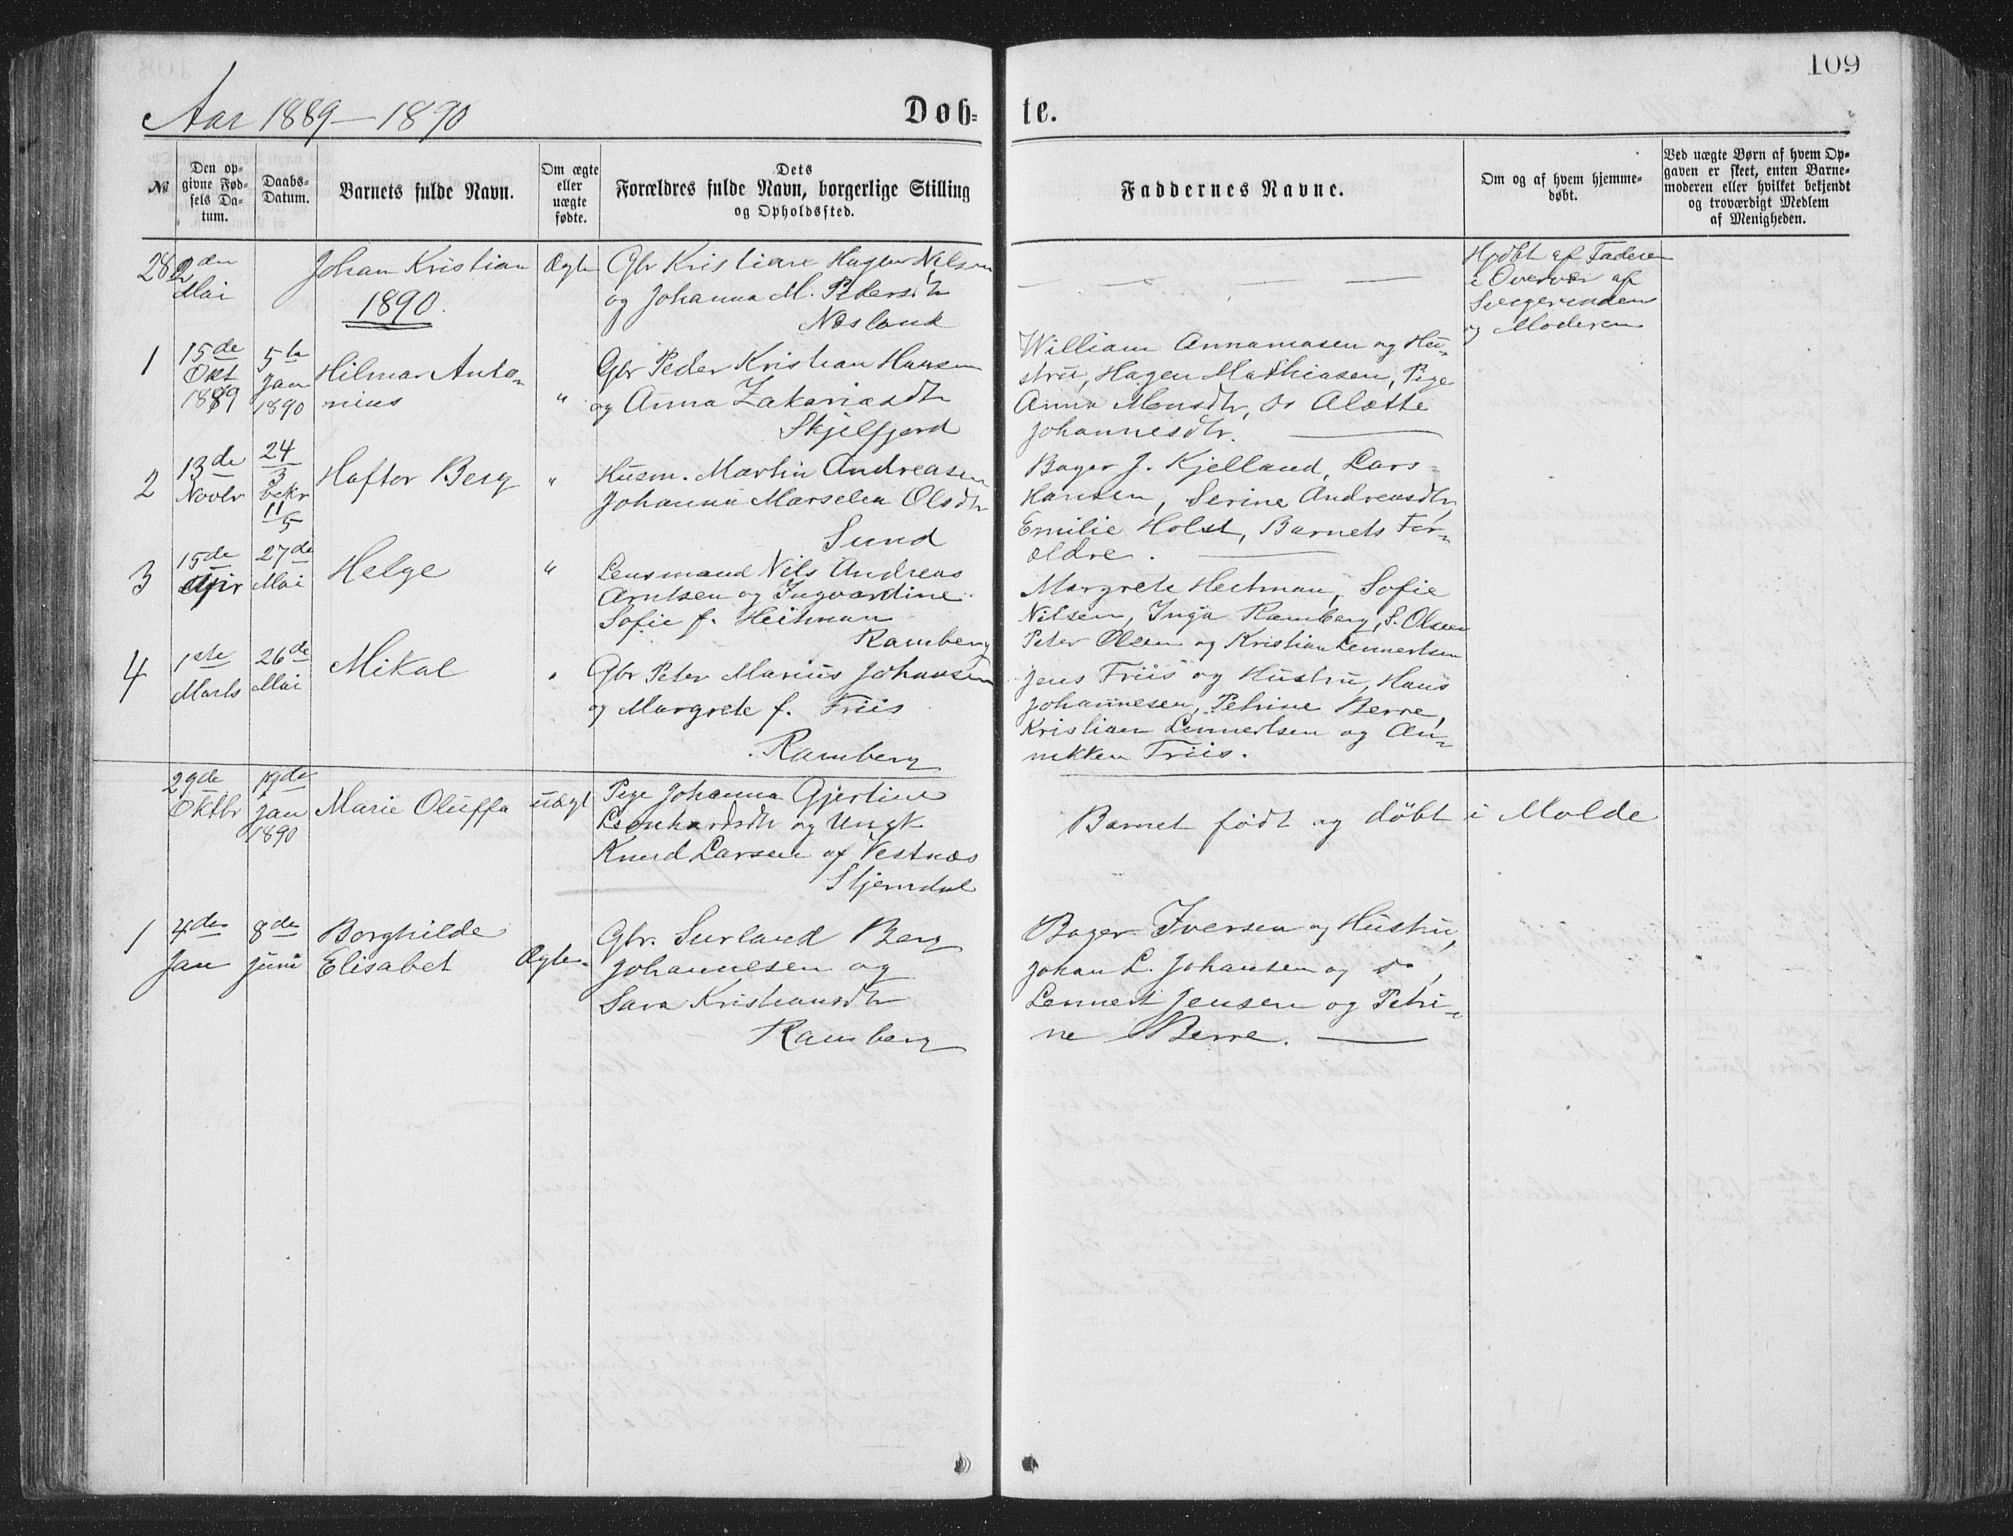 109
Aar 1889-1890
Døb-
te.
№
Den op-
givne Fød-
sels Da-
tum.
Daabs-
Datum.
Barnets fulde Navn.
Om ægte
eller
uægte
fødte.
Dets
Forældres fulde Navn, borgerlige Stilling
og Opholdssted.
Faddernes Navne.
Om og af hvem hjemme-
døbt.
Ved uægte Børn af hvem Op-
gaven er skeet, enten Barne-
moderen eller hvilket bekjendt
og troværdigt Medlem
af Menigheden.
28
2den
Mai
Johan Kristian
Ægte
Gbr Kristian Hagen Nilsen
og Johanna M. Pedersdtr
Næsland
— — — —
Hjdbt af Faderen
i Overvær af
og Moderen
1890.
1
15de
Okt
1889
5te
Jan
1890
Hilmar Anto-
nius
"
Gbr Peder Kristian Hansen
og Anna Zakariasdtr
Skjelfjord
William Annanasen og Hu-
stru, Hagen Mathiasen, Pige
Anna Monsdtr, do Alette
Johannesdtr.
2
13de
Novbr
24
3
bekr
11
5
Haftor Berg
"
Husm. Martin Andreasen
Johanna Marselea Olsdtr
Sund
Bager J. Kjelland, Lars
Hansen, Serine Andreasdtr,
Emilie Holst, Barnets For-
ældre.
3
15de
Apr
27de
Mai
Helge
"
Lensmand Nils Andreas
Arntsen og Ingvardine
Sofie f. Heitman
Ramberg
Margrete Heitman, Sofie
Nilsen, Inga Ramberg, S. Olsen
Peter Olsen og Kristian Lennertsen
4
1ste
Marts
26de
Mai
Mikal
"
Gbr Peter Marius Johansen
og Margrete f. Friis
Ramberg
Jens Friis og Hustru, Hans
Johannesen, Petrine Berre,
Kristian Lennertsen og An-
nikken Friis.
29de
Oktbr
19de
Jan
1890
Marie Oluffa
uægt
Pige Johanna Gjertine
Leonhardsdtr og Ungk
Knud Larsen af Vestnæs
Stjerndal
Barnet født og døbt i Molde
1
4de
Jan
8de
Juni
Borghilde
Elisabet
Ægte
Gbr. Surland Berg
Johannesen og
Sara Kristiansdtr
Ramberg
Bager Iversen og Hustru,
Johan L. Johansen og do,
Lennert Jensen og Petri-
ne Berre.